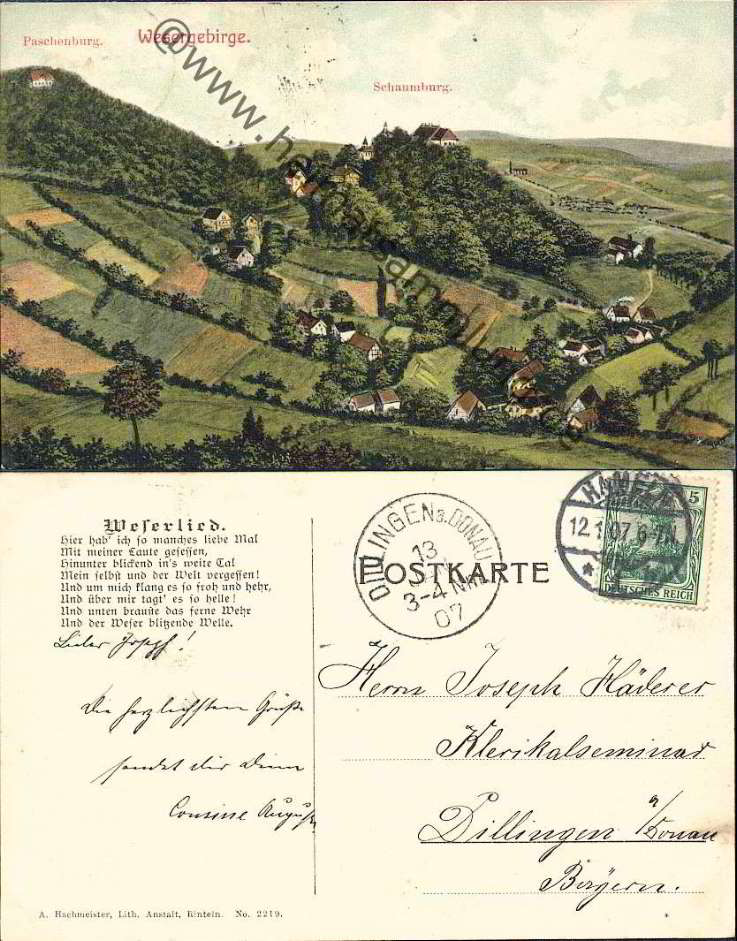 Paschenburg.
Wesergebirge.
Schaumburg.
Weserlied.
Hier hab' ich so manches liebe Mal
Mit meiner Laute gesessen,
Hinunter blickend in's weite Tal
Mein selbst und der Welt vergessen!
Und um mich klang es so froh und hehr,
Und über mir tagt' es so helle!
Und unten brauste das ferne Wehr
Und der Weser blitzende Welle.
Lieber Joseph!
Die herzlichsten Grüße
sendet dir Deine
Cousine
A. Hachmeister, Lith. Anstalt, Rinteln. No. 2219.
DILLINGEN a. DONAU
13
3-4 NM
07
POSTKARTE
HAMELN
12.1.07. 6-7N.
5
DEUTSCHES REICH
Herrn Joseph Häderer
Klerikalseminar
Dillingen a/Donau
Bayern.